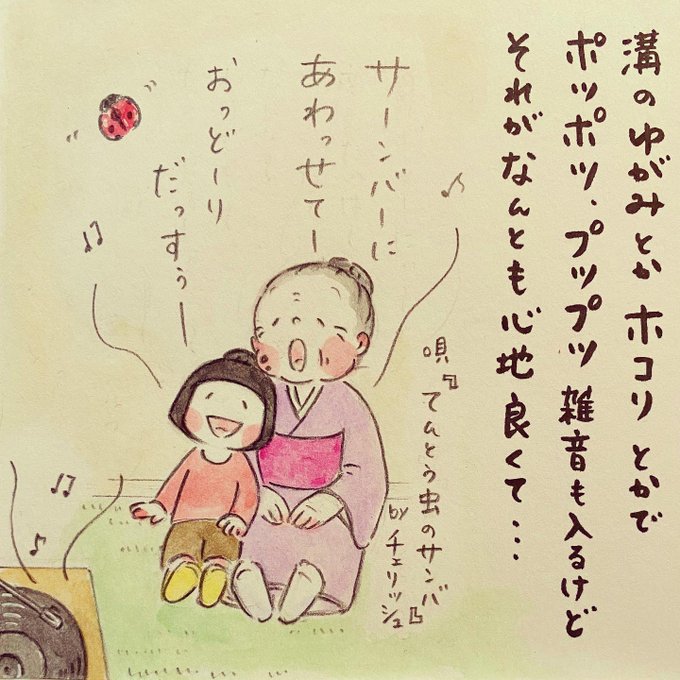 溝のゆがみとか ホコリとかで
ポツポツ、プツプツ 雑音も入るけど
それがなんとも心地良くて…
サーンバーに
あわっせてー
おっどーり
だっすぅー
唄『てんとう虫のサンバ』
by チェリッシュ